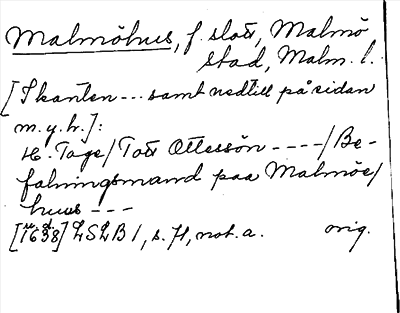 Malmöhus, f. slott, Malmö
stad, Malm. l.
[I kanten --- samt nedtill på sidan
m.y.h.]:
H. Tage/Tott Ottessön ----/Be-
falningsmand paa Malmöe/
huus ---
[1638] LSLB 1, s. 71, not. a. orig.